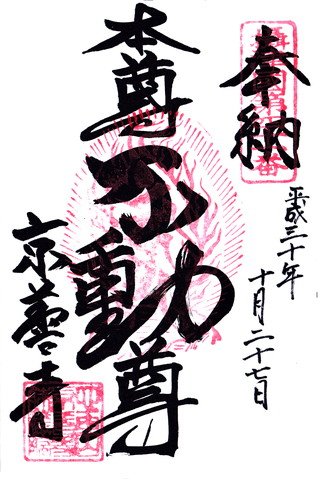 奉納
平成三十年
十月二十七日
本尊
不動尊
京善寺